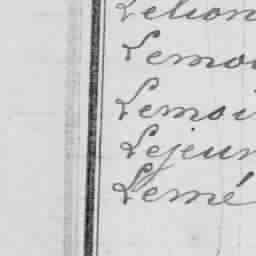 Lelion
Lemoi
Lemoi
Lejeun
Lemé